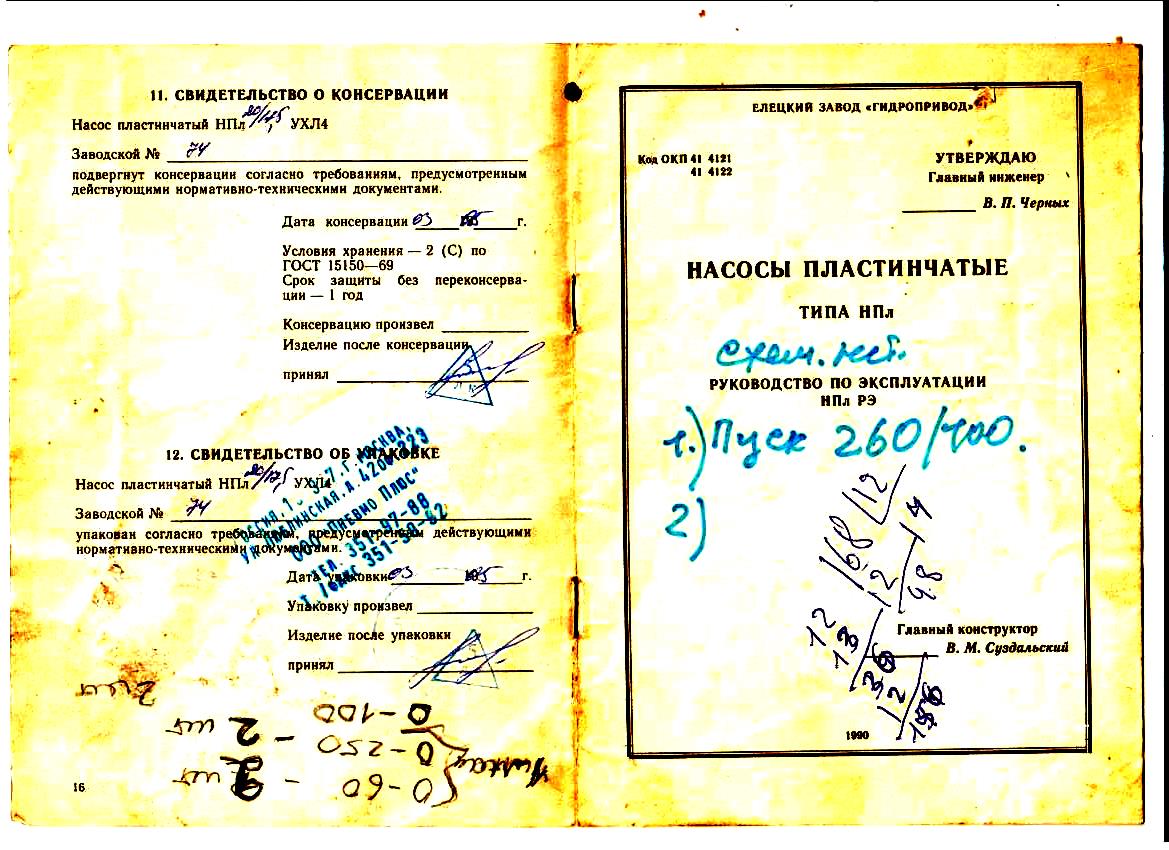 11. СВИДЕТЕЛЬСТВО О КОНСЕРВАЦИИ
Насос пластинчатый НПл 20/12,5 УХЛ4
Заводской № 74
подвергнут консервации согласно требованиям, предусмотренным
действующими нормативно-техническими документами.
Дата консервации 03 95 г.
Условия хранения — 2 (С) по
ГОСТ 15150—69
Срок защиты без переконсерва-
ции — 1 год
Консервацию произвел
Изделие после консервации
принял
12. СВИДЕТЕЛЬСТВО ОБ УПАКОВКЕ
Насос пластинчатый НПл УХЛ4
Заводской № 74
упакован согласно требованиям, предусмотренным действующими
нормативно-техническими документами.
МОСКВА,
ЛЮБЛИНСКАЯ, Д. 42
ООО „Пневмо Плюс"
ТЕЛ. 351-97-88
351-50-82
Дата упаковки 03 195 г.
Упаковку произвел
Изделие после упаковки
принял
2 шт
0-100
0-250 - 2 шт
0-60 - 2 шт
16
ЕЛЕЦКИЙ ЗАВОД «ГИДРОПРИВОД»
Код ОКП 41 4121
41 4122
УТВЕРЖДАЮ
Главный инженер
В. П. Черных
НАСОСЫ ПЛАСТИНЧАТЫЕ
ТИПА НПл
схем. нет.
РУКОВОДСТВО ПО ЭКСПЛУАТАЦИИ
НПл РЭ
1.) Пуск 260/400.
2)
168 12
12 14
48
12
13
36
12
156
Главный конструктор
В. М. Суздальский
1990